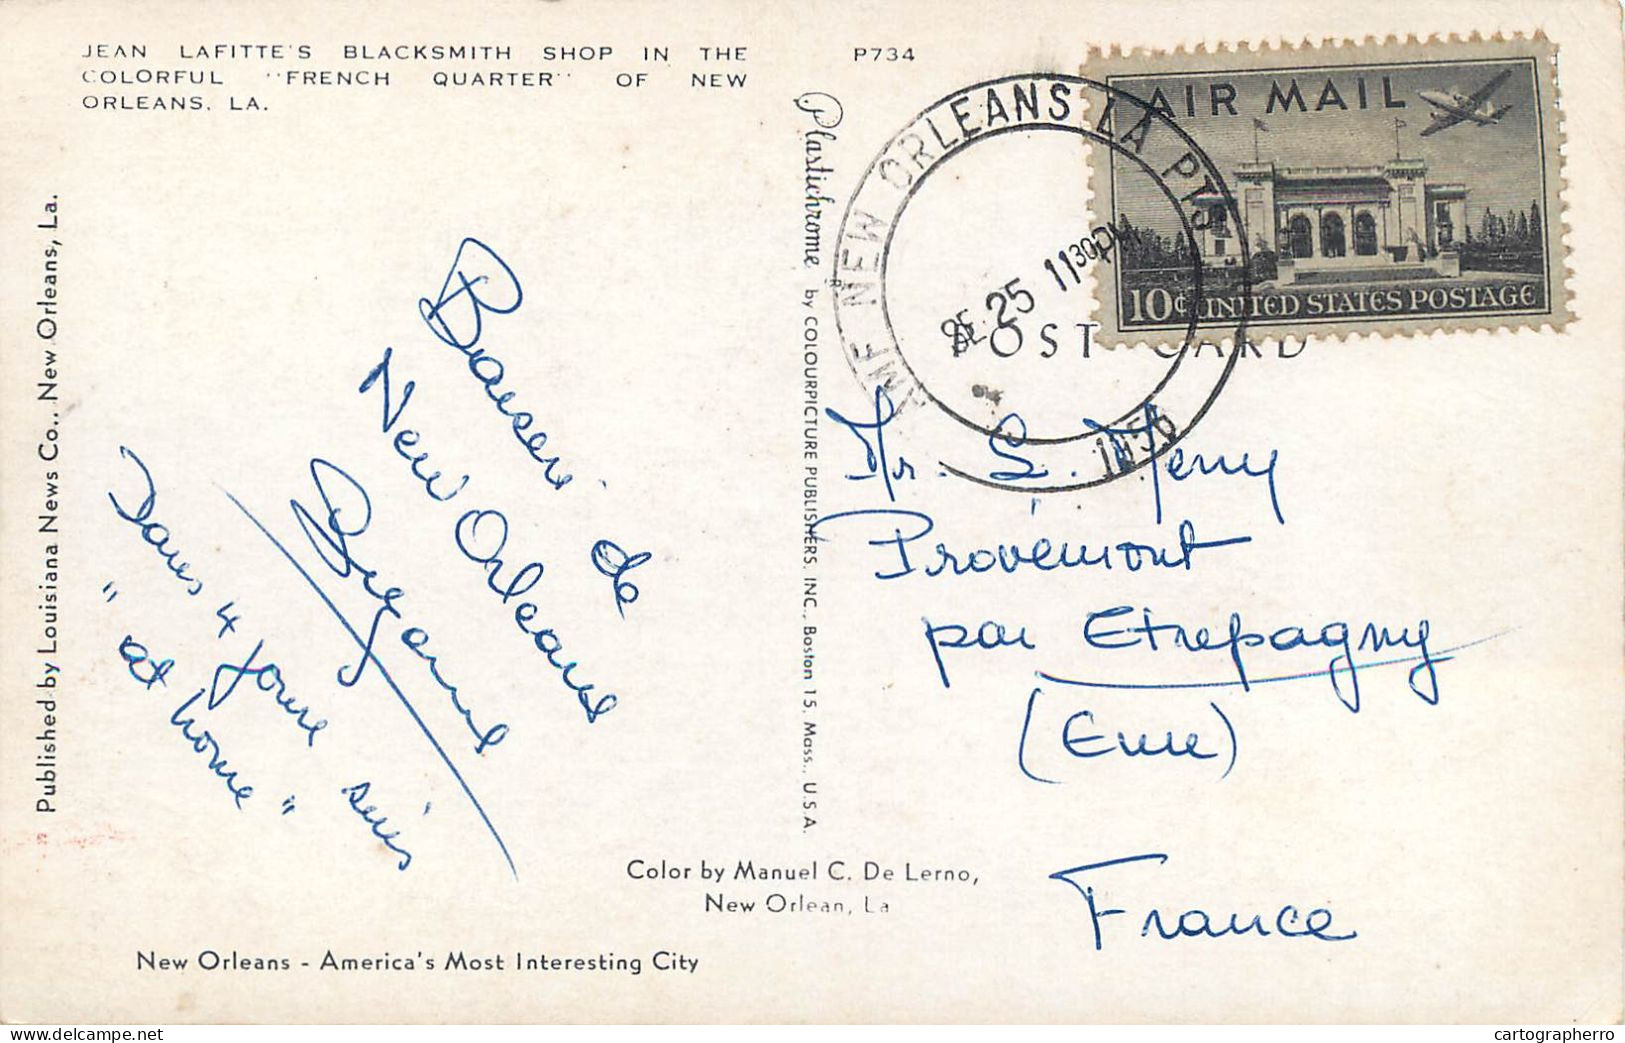 JEAN LAFITTE'S BLACKSMITH SHOP IN THE
COLORFUL "FRENCH QUARTER" OF NEW
ORLEANS, LA.
P734
Published by Louisiana News Co., New Orleans, La.
Plastichrome by COLOURPICTURE PUBLISHERS, INC., Boston 15, Mass., U.S.A.
de
New Orleans
Dans 4 jours
"at home"
AMF NEW ORLEANS LA
SE 25 11 30PM
1956
AIR MAIL
10¢ UNITED STATES POSTAGE
POST CARD
Mr. L. Merry
Provémont
par Etrepagny
(Eure)
France
Color by Manuel C. De Lerno,
New Orlean, La
New Orleans - America's Most Interesting City
cartographerro